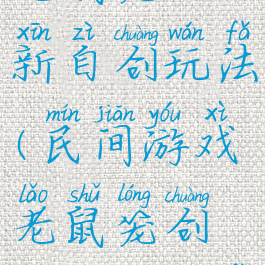 xīn zì chuàng wán fǎ
新自创玩法
mín jiān yóu xì
(民间游戏
lǎo shǔ lóng chuàng
老鼠笼创